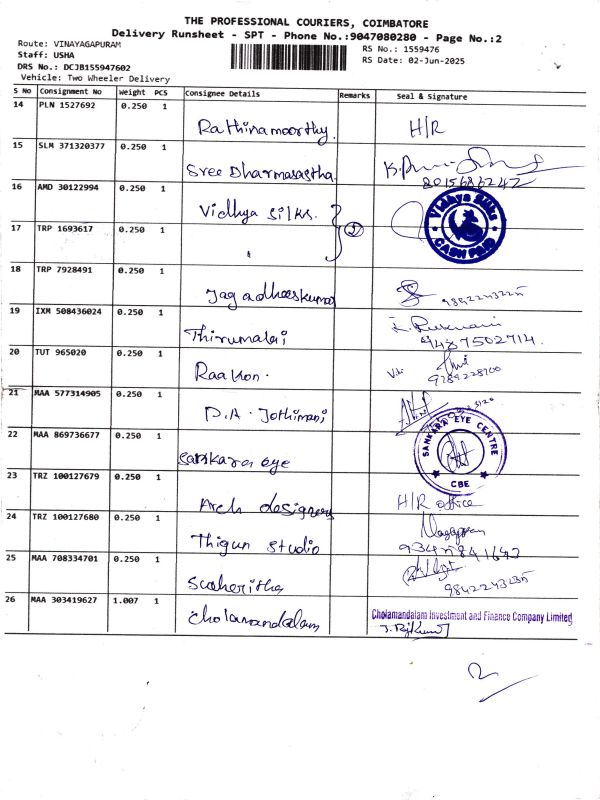 THE PROFESSIONAL COURIERS, COIMBATORE
Delivery Runsheet - SPT - Phone No.:9047080280 - Page No.:2
Route: VINAYAGAPURAM
Staff: USHA
DRS No.: DCJB155947602
Vehicle: Two Wheeler Delivery
RS No.: 1559476
RS Date: 02-Jun-2025
S No Consignment No Weight PCS Consignee Details Remarks Seal & Signature
14 PLN 1527692 0.250 1
Rathinamoorthy. H/R
15 SLM 371320377 0.250 1
Sree Dharmasastha
8015686242
16 AMD 30122994 0.250 1
Vidhya silks.
Vidhya Silks
CASH PAID
17 TRP 1693617 0.250 1
"
18 TRP 7928491 0.250 1
Jagadheeskumar 9842243235
19 IXM 508436024 0.250 1
Thirumalai
9487502714.
20 TUT 965020 0.250 1
Raakon. 9789228700
21 MAA 577314905 0.250 1
D.A. Jothimani
22 MAA 869736677 0.250 1
Sankara eye
SANKARA EYE CENTRE
CBE
23 TRZ 100127679 0.250 1
Arch designers H/R office
24 TRZ 100127680 0.250 1
Thigun studio
9345841643
25 MAA 708334701 0.250 1
9842243235
26 MAA 303419627 1.007 1
Cholamandalam
Cholamandalam Investment and Finance Company Limited
J. Rajkumar
2